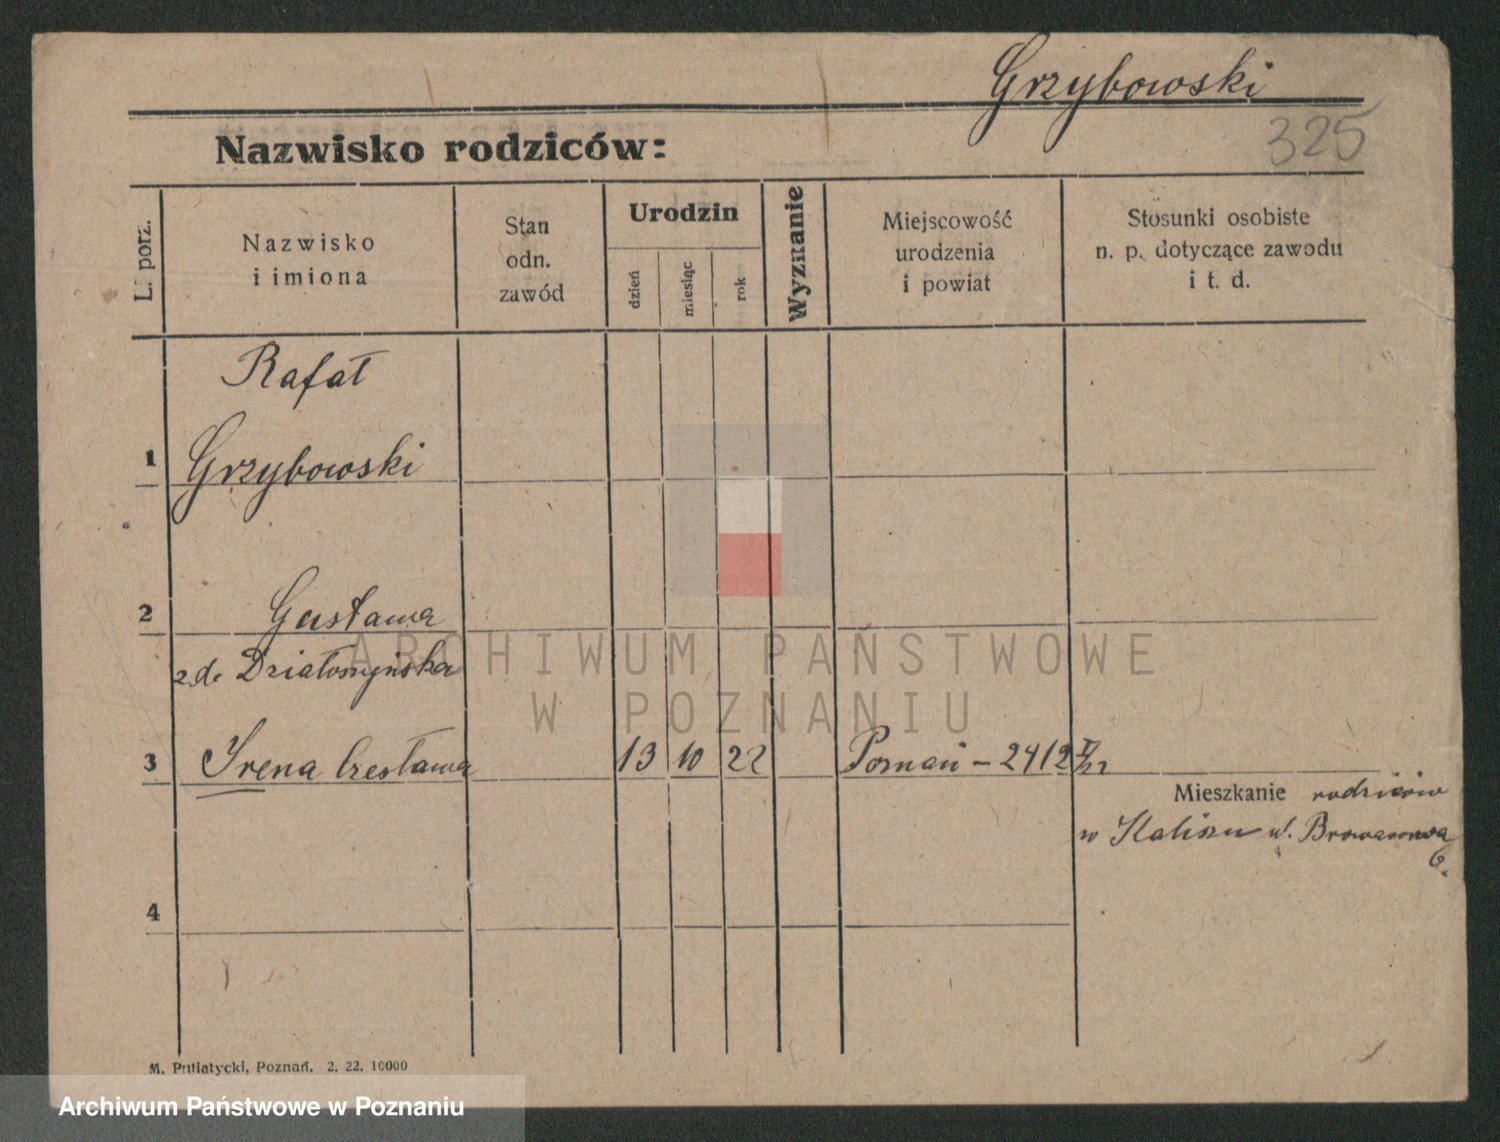 Grzybowski
325
Nazwisko rodziców:
L. porz.
Nazwisko
i imiona
Stan
odn.
zawód
Urodzin
dzień
miesiąc
rok
Wyznanie
Miejscowość
urodzenia
i powiat
Stosunki osobiste
n. p. dotyczące zawodu
i t. d.
Rafał
1 Grzybowski
2 Gustawa
z d. Działoszyńska
ARCHIWUM PAŃSTWOWE
W POZNANIU
3 Irena Czesława 13 10 22 Poznań – 2412
Mieszkanie rodziców
w Kaliszu ul. Browarowa
6.
4
M. Putiatycki, Poznań. 2. 22. 10000
Archiwum Państwowe w Poznaniu